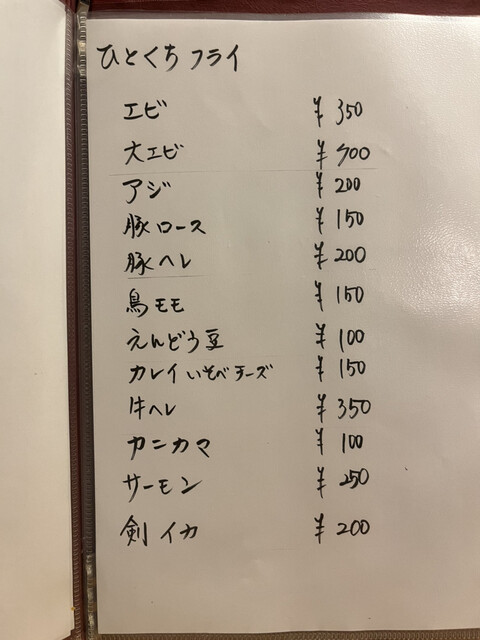 ひとくちフライ
エビ ¥350
大エビ ¥700
アジ ¥200
豚ロース ¥150
豚ヘレ ¥200
鳥モモ ¥150
えんどう豆 ¥100
カレイいそべチーズ ¥150
牛ヘレ ¥350
カニカマ ¥100
サーモン ¥250
剣イカ ¥200